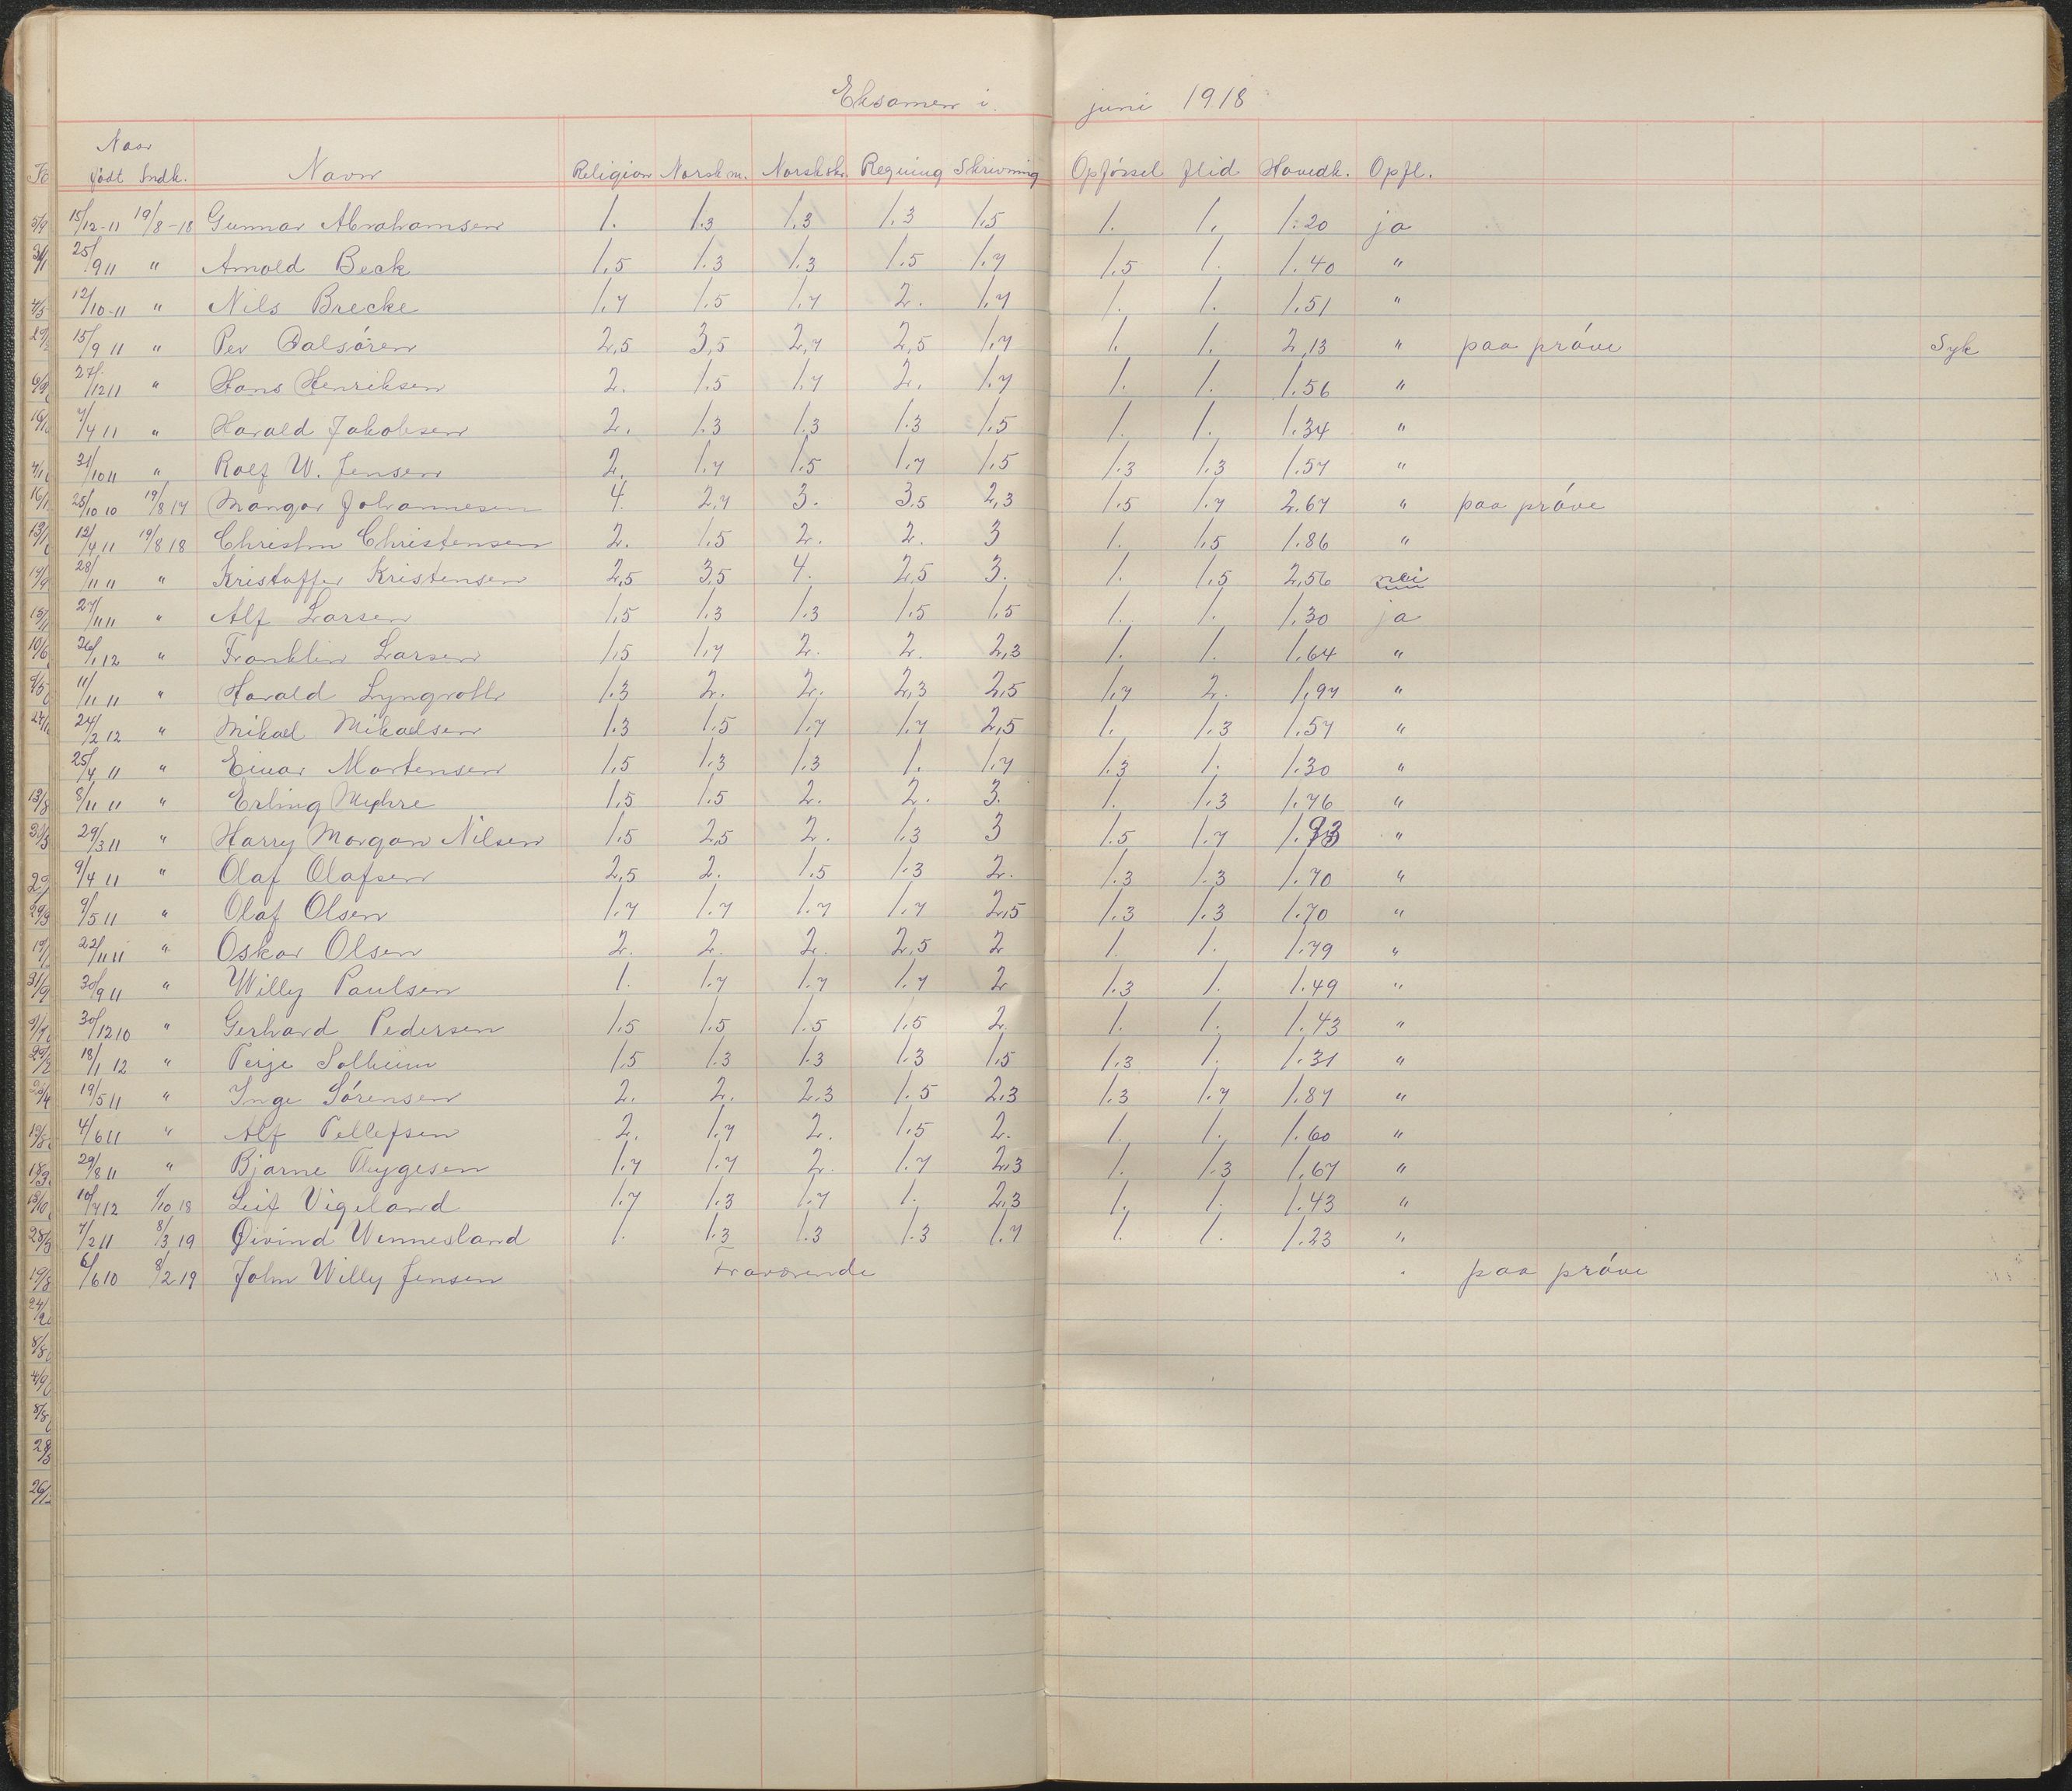 Eksamen i juni 1918
Naar
født Indk. Navn Religion Norsk m. Norsk skr. Regning Skrivning Opførsel Flid Hovedk. Opfl.
15/12-11 19/8-18 Gunnar Abrahamsen 1. 1.3 1.3 1.3 1.5 1. 1. 1.20 ja
25/9 11 " Arnold Beck 1,5 1.3 1.3 1.5 1.7 1.5 1. 1.40 "
12/10-11 " Nils Brecke 1,7 1.5 1.7 2. 1.7 1. 1. 1.51 "
15/9 11 " Per Dalsøren 2,5 3,5 2,7 2,5 1.7 1. 1. 2,13 " paa prøve Syk
27/12 11 " Hans Henriksen 2. 1.5 1.7 2. 1.7 1. 1. 1.56 "
7/4 11 " Harald Jakobsen 2. 1.3 1.3 1.3 1.5 1. 1. 1.34 "
31/10 11 " Rolf W. Jensen 2. 1.7 1.5 1.7 1.5 1.3 1.3 1.57 "
25/10 10 19/8 17 Mangor Johannesen 4. 2,7 3. 3.5 2,3 1.5 1.7 2.67 " paa prøve
12/4 11 19/8 18 Christen Christensen 2. 1.5 2. 2. 3 1. 1.5 1.86 "
28/11 11 " Kristoffer Kristensen 2,5 3,5 4. 2,5 3. 1. 1.5 2,56 nei
27/11 11 " Alf Larsen 1,5 1.3 1.3 1.5 1.5 1. 1. 1.30 ja
26/1 12 " Franklin Larsen 1.5 1.7 2. 2. 2,3 1. 1. 1.64 "
11/11 11 " Harald Lyngroth 1.3 2. 2. 2,3 2,5 1.7 2. 1,97 "
24/2 12 " Mikael Mikaelsen 1.3 1.5 1.7 1.7 2,5 1. 1.3 1.57 "
25/4 11 " Einar Martensen 1,5 1.3 1.3 1. 1.7 1.3 1. 1.30 "
8/11 11 " Erling Myhre 1,5 1.5 2. 2. 3. 1. 1.3 1.76 "
29/3 11 " Harry Morgan Nilsen 1.5 2,5 2. 1.3 3 1.5 1.7 1.93 "
9/4 11 " Olaf Olafsen 2,5 2. 1.5 1.3 2. 1.3 1.3 1.70 "
9/5 11 " Olaf Olsen 1.7 1.7 1.7 1.7 2,5 1.3 1.3 1.70 "
22/11 11 " Oskar Olsen 2. 2. 2. 2,5 2 1. 1. 1.79 "
30/9 11 " Willy Paulsen 1. 1.7 1.7 1.7 2 1.3 1. 1.49 "
30/12 10 " Gerhard Pedersen 1.5 1.5 1.5 1.5 2. 1. 1. 1.43 "
18/1 12 " Terje Solheim 1.5 1.3 1.3 1.3 1.5 1.3 1. 1.31 "
19/5 11 " Inge Sørensen 2. 2. 2.3 1.5 2.3 1.3 1.7 1.87 "
4/6 11 " Alf Tellefsen 2. 1.7 2. 1.5 2. 1. 1. 1.60 "
29/8 11 " Bjarne Thygesen 1.7 1.7 2. 1.7 2,3 1. 1.3 1.67 "
10/7 12 1/10 18 Leif Vigeland 1.7 1.3 1.7 1. 2,3 1. 1. 1.43 "
7/2 11 8/3 19 Øivind Wennesland 1. 1.3 1.3 1.3 1.7 1. 1. 1.23 "
6/6 10 8/2 19 John Willy Jensen Fraværende paa prøve